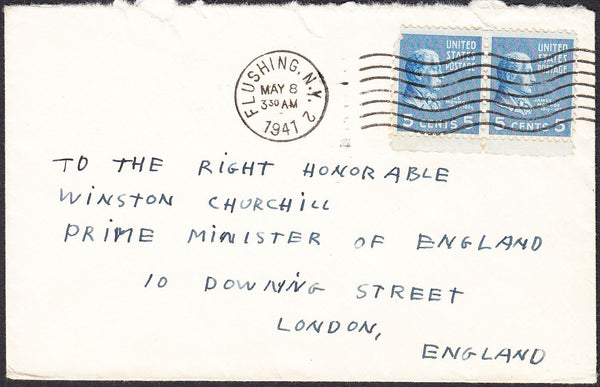 FLUSHING, N.Y. 2
MAY 8
3 30 AM
1941
UNITED
STATES
POSTAGE
5 CENTS 5
UNITED
STATES
POSTAGE
5 CENTS 5
TO THE RIGHT HONORABLE
WINSTON CHURCHILL
PRIME MINISTER OF ENGLAND
10 DOWNING STREET
LONDON,
ENGLAND